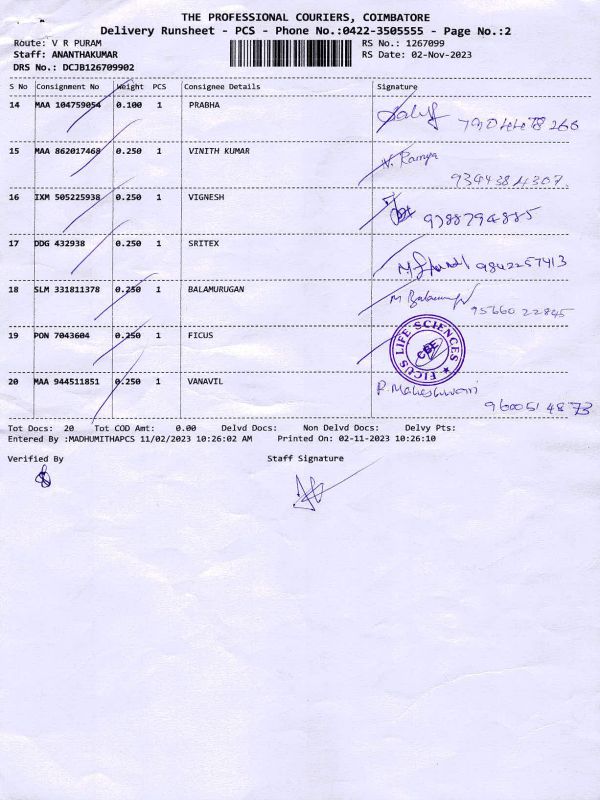 THE PROFESSIONAL COURIERS, COIMBATORE
Delivery Runsheet - PCS - Phone No.:0422-3505555 - Page No.:2
Route: V R PURAM RS No.: 1267099
Staff: ANANTHAKUMAR RS Date: 02-Nov-2023
DRS No.: DCJB126709902
S No Consignment No Weight PCS Consignee Details Signature
14 MAA 104759054 0.100 1 PRABHA
15 MAA 862017468 0.250 1 VINITH KUMAR N. Ramya
9344384307.
16 IXM 505225938 0.250 1 VIGNESH
9788794885
17 DDG 432938 0.250 1 SRITEX
9842257413
18 SLM 331811378 0.250 1 BALAMURUGAN M Balamurugan
95660 22845
19 PON 7043604 0.250 1 FICUS FICUS LIFE SCIENCES
CBE
20 MAA 944511851 0.250 1 VANAVIL P. Maheshwari
9600514873
Tot Docs: 20 Tot COD Amt: 0.00 Delvd Docs: Non Delvd Docs: Delvy Pts:
Entered By :MADHUMITHAPCS 11/02/2023 10:26:02 AM Printed On: 02-11-2023 10:26:10
Verified By Staff Signature